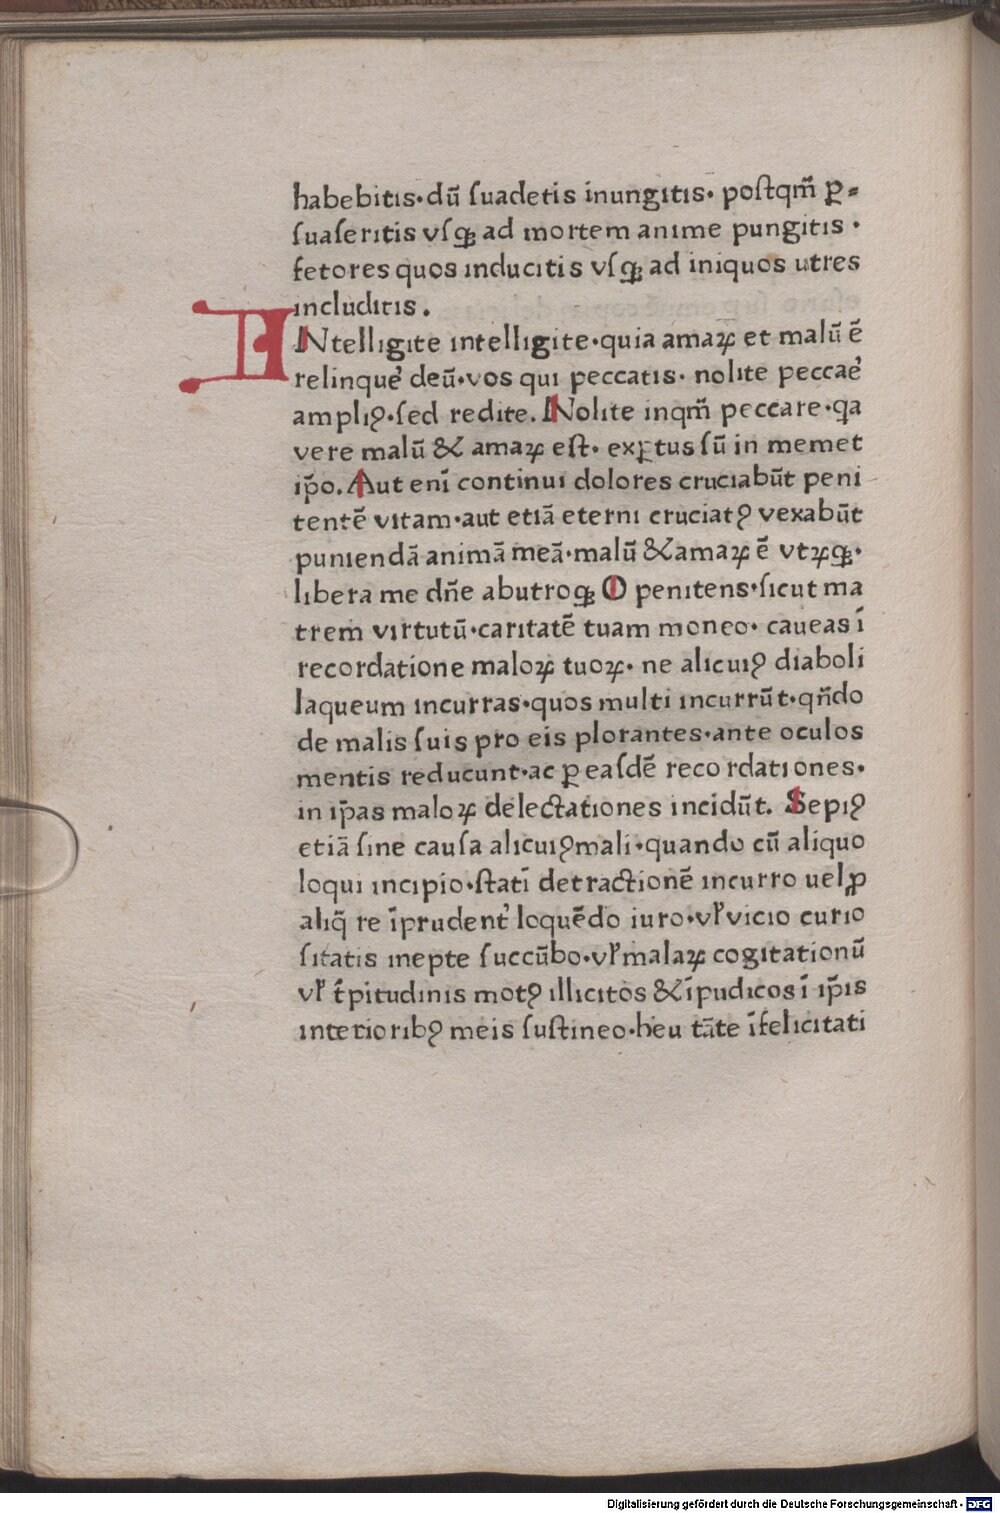 habebitis·dū ſuadetis inungitis· poſtqm̄ ꝑ⸗
ſuaſeritis vſqꝫ ad mortem anime pungitis ·
fetores quos inducitis vſqꝫ ad iniquos utres
includitis.
INtelligite intelligite·quia amaꝝ et malū ē
relinque᷒ deū·vos qui peccatis· nolite peccae᷒
ampliꝰ·ſed redite. Nolite inqm̄ peccare·qa
vere malū & amaꝝ eſt· exꝑtus ſū in memet
ip̄o. Aut enī continui dolores cruciabūt peni
tentē vitam·aut etiā eterni cruciatꝰ vexabūt
puniendā animā meā·malū & amaꝝ ē vtꝝqꝫ·
libera me dn̄e abutroqꝫ O penitens·ſicut ma
trem virtutū·caritatē tuam moneo· caueas ī
recordatione maloꝝ tuoꝝ· ne alicuiꝰ diaboli
laqueum incurras·quos multi incurrūt·qn̄do
de malis ſuis pro eis plorantes·ante oculos
mentis reducunt·ac ꝑ eaſdē recordationes·
in ip̄as maloꝝ delectationes incidūt. Sepiꝰ
etiā ſine cauſa alicuiꝰ mali·quando cū aliquo
loqui incipio·ſtatī detractionē incurro uel ꝓ
aliq̄ re īprudent᷒ loquēdo iuro·vł vicio curio
ſitatis inepte ſuccūbo·vł malaꝝ cogitationū
vł t̄pitudinis motꝰ illicitos & īpudicos ī ip̄is
interioribꝰ meis ſuſtineo·heu tāte īfelicitati
Digitalisierung gefördert durch die Deutsche Forschungsgemeinschaft · DFG